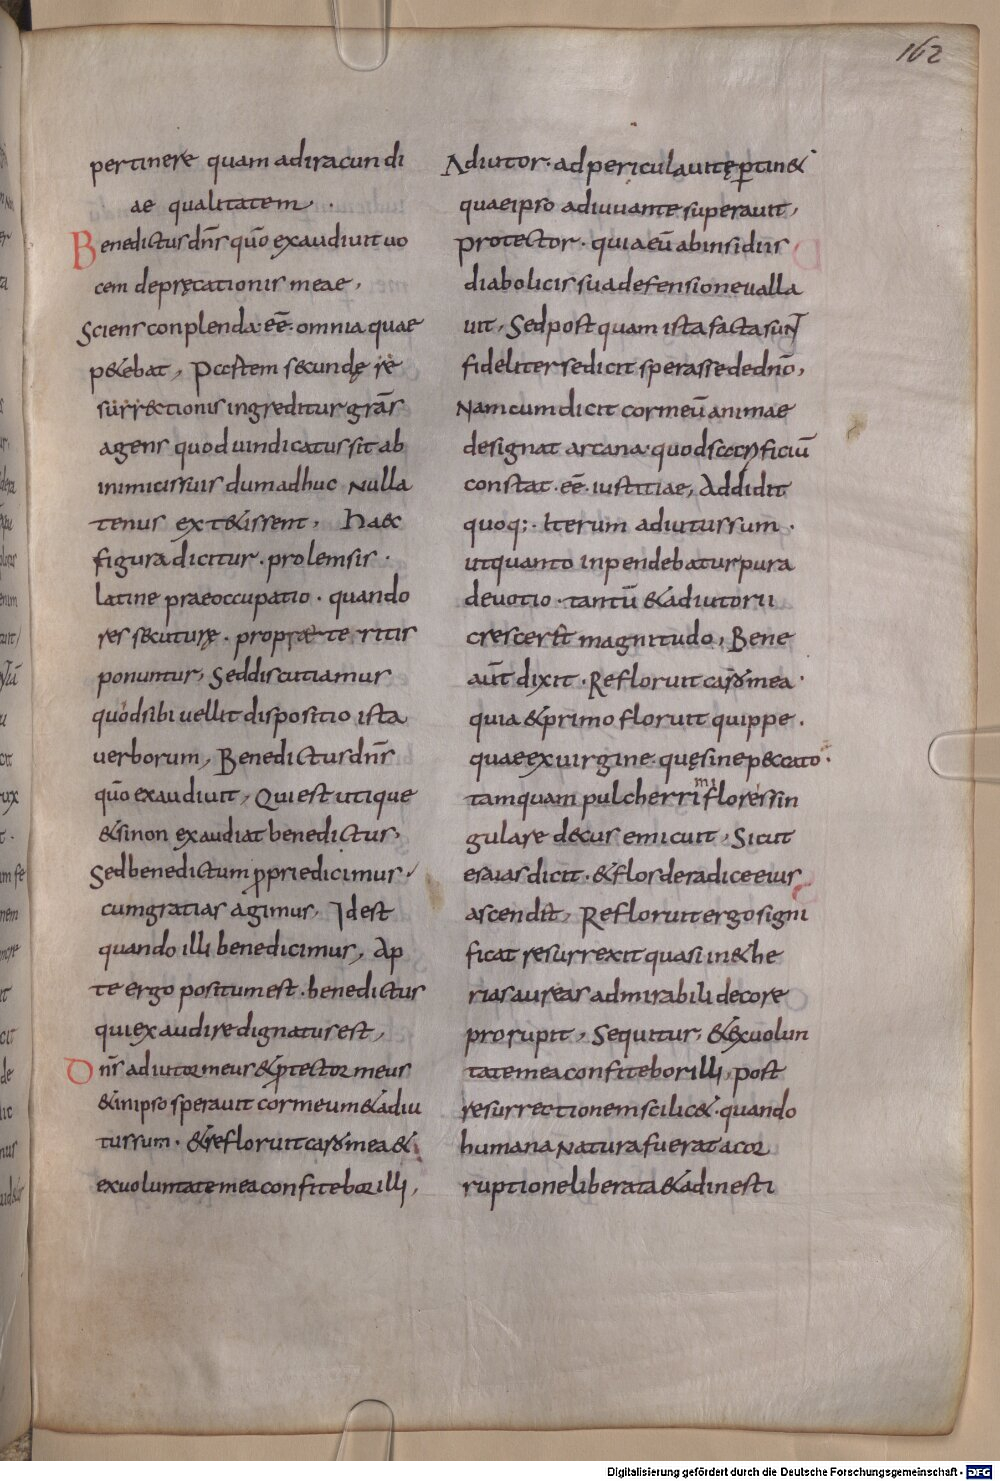 162
pertinere quam adiracundi
ae qualitatem .
Benedictus dn̄s qūo exaudiuit uo
cem depręcationis meae,
Sciens conplenda·eē·omnia quae
p&ebat, Postem secundę re
surrectionis ingreditur gr̄as
agens quod uindicatus sit ab
inimicis suis dum adhuc Nulla
tenus ext&issent, haec
figura dicitur . prolemsis ·
latine praeoccupatio . quando
res secuturę . propraeteritis
ponuntur, Sed discutiamus
quod sibi uellit dispositio ista
uerborum, Benedictus dn̄s
qūo exaudiuit, Qui est utique
& si non exaudiat benedictus,
Sed benedictum ꝓprie dicimus,
cum gratias agimus, Idest
quando illi benedicimus, Ap
te ergo positum est . benedictus
qui exaudire dignatus est,
Dn̄s adiutor meus & ꝓtector meus
& in ipso sperauit cor meum & adiu
tus sum . & refloruit caro mea &
ex uoluntate mea confitebor illi,
Adiutor · ad pericula uitę ꝑtin&
quae ipso adiuuante superauit,
protector · quia eū ab insidiis
diabolicis sua defensione ualla
uit, Sed post quam ista facta sunt
fideliter se dicit sperasse de dn̄o,
Nam cum dicit cor meū animae
designat arcana·quod sacrificiū
constat·eē·iustitiae, Addidit
quoq;· Iterum adiutus sum ·
ut quanto inpendebatur pura
deuotio · tantū & adiutorii
crescer& magnitudo, Bene
aūt dixit · Refloruit caro mea ·
quia & primo floruit quippe .
quae ex uirgine · quę sine peccato ·
tamquam pulcherrimi floris sin
gulare decus emicuit, Sicut
esaias dicit · & flos de radice eius
ascend&, Refloruit ergo signi
ficat resurrexit quasi in &he
rias aureas admirabili decore
prorupit, Sequitur, & ex uolun
tate mea confitebor illi, post
resurrectionem scilic& · quando
humana Natura fuerat a cor
ruptione liberata & ad inesti
Digitalisierung gefördert durch die Deutsche Forschungsgemeinschaft - DFG